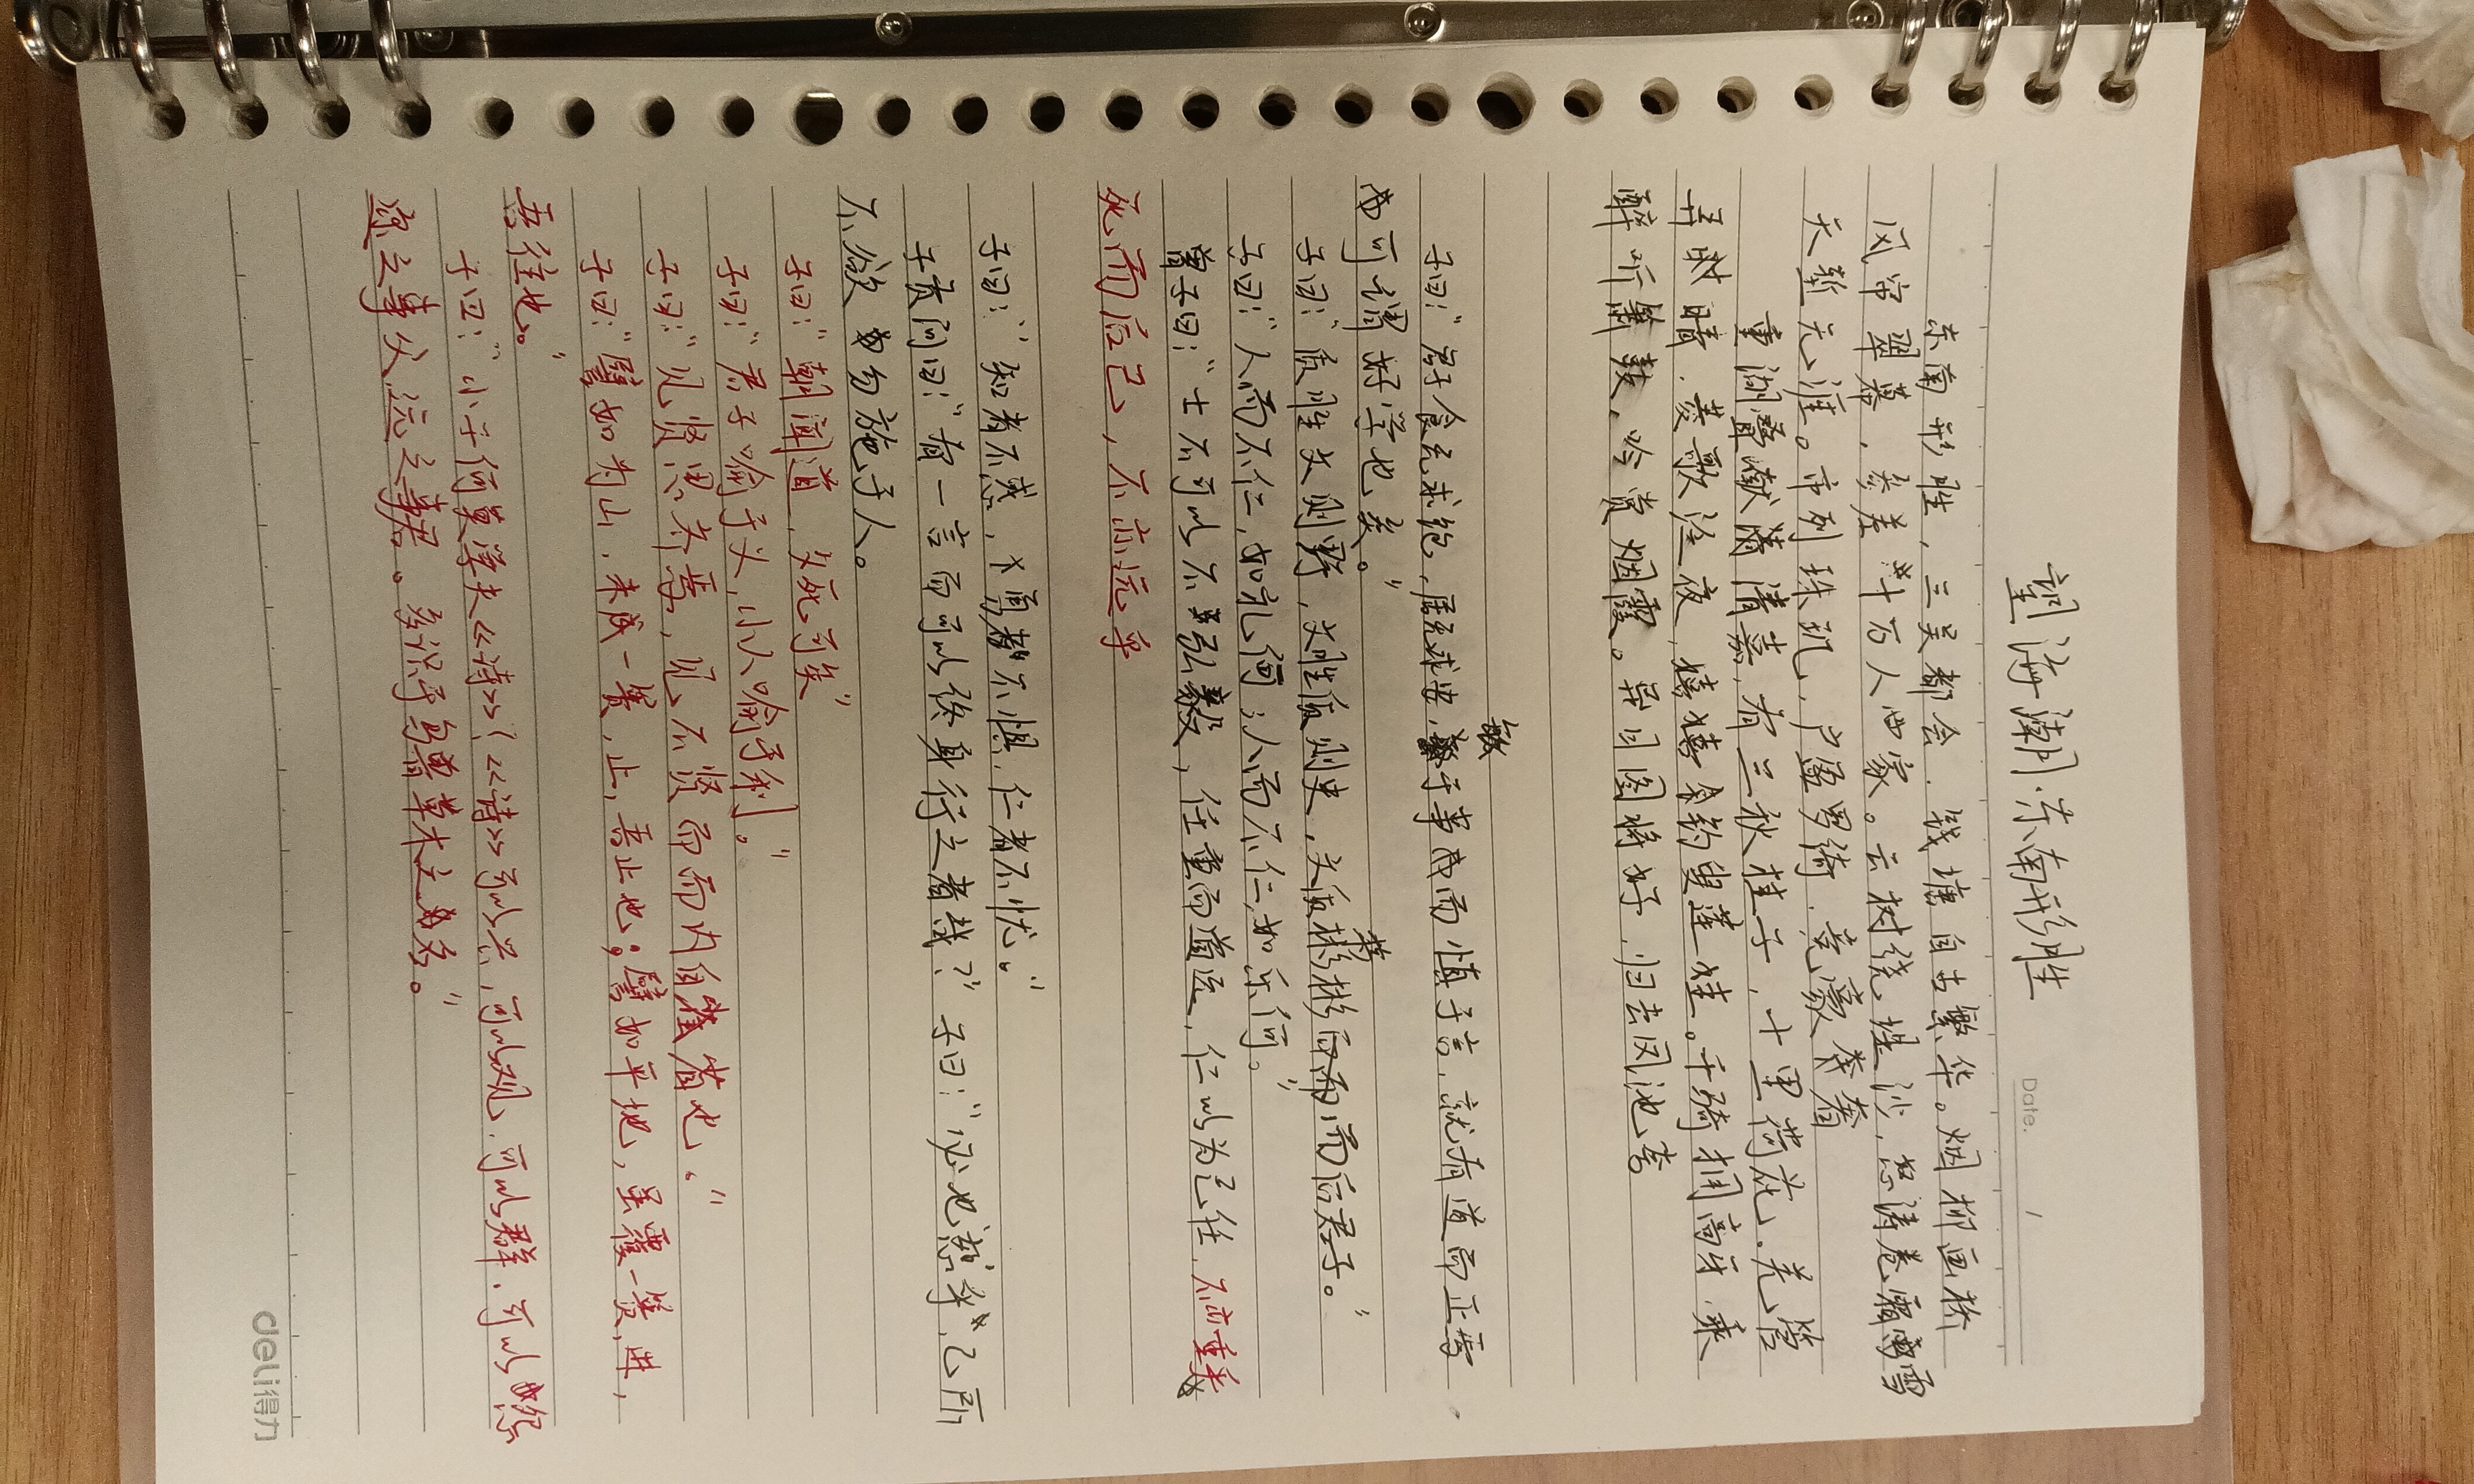 望海潮·东南形胜
Date. /
东南形胜,三吴都会,钱塘自古繁华。烟柳画桥
风帘翠幕,参差十万人家。云树绕堤沙,怒涛卷霜雪
天堑无涯。市列珠玑,户盈罗绮,竞豪奢
重湖叠巘清嘉,有三秋桂子,十里荷花。羌管
弄晴,菱歌泛夜,嬉嬉钓叟莲娃。千骑拥高牙,乘
醉听箫鼓,吟赏烟霞。异日图将好,归去凤池夸
子曰:“君子食无求饱,居无求安,敏于事而慎于言,就有道而正焉
可谓好学也矣。”
子曰:“质胜文则野,文胜质则史,文质彬彬然而后君子。”
子曰:“人而不仁,如礼何;人而不仁,如乐何。”
曾子曰:“士不可以不弘毅,任重而道远,仁以为己任,不亦重
死而后已,不亦远乎
子曰:“知者不惑,勇者不惧,仁者不忧。”
子贡问曰:“有一言而可以终身行之者哉?”子曰:“必也恕乎,己所
不欲勿施于人。
子曰:“朝闻道,夕死可矣”
子曰:“君子喻于义,小人喻于利。”
子曰:“见贤思齐焉,见不贤而而内自省也。”
子曰:“譬如为山,未成一篑,止,吾止也;譬如平地,虽覆一篑,进,
吾往也。”
子曰:“小子何莫学夫《诗》?《诗》可以兴,可以观,可以群,可以怨
迩之事父,远之事君。多识乎鸟兽草木之名。”
deli得力